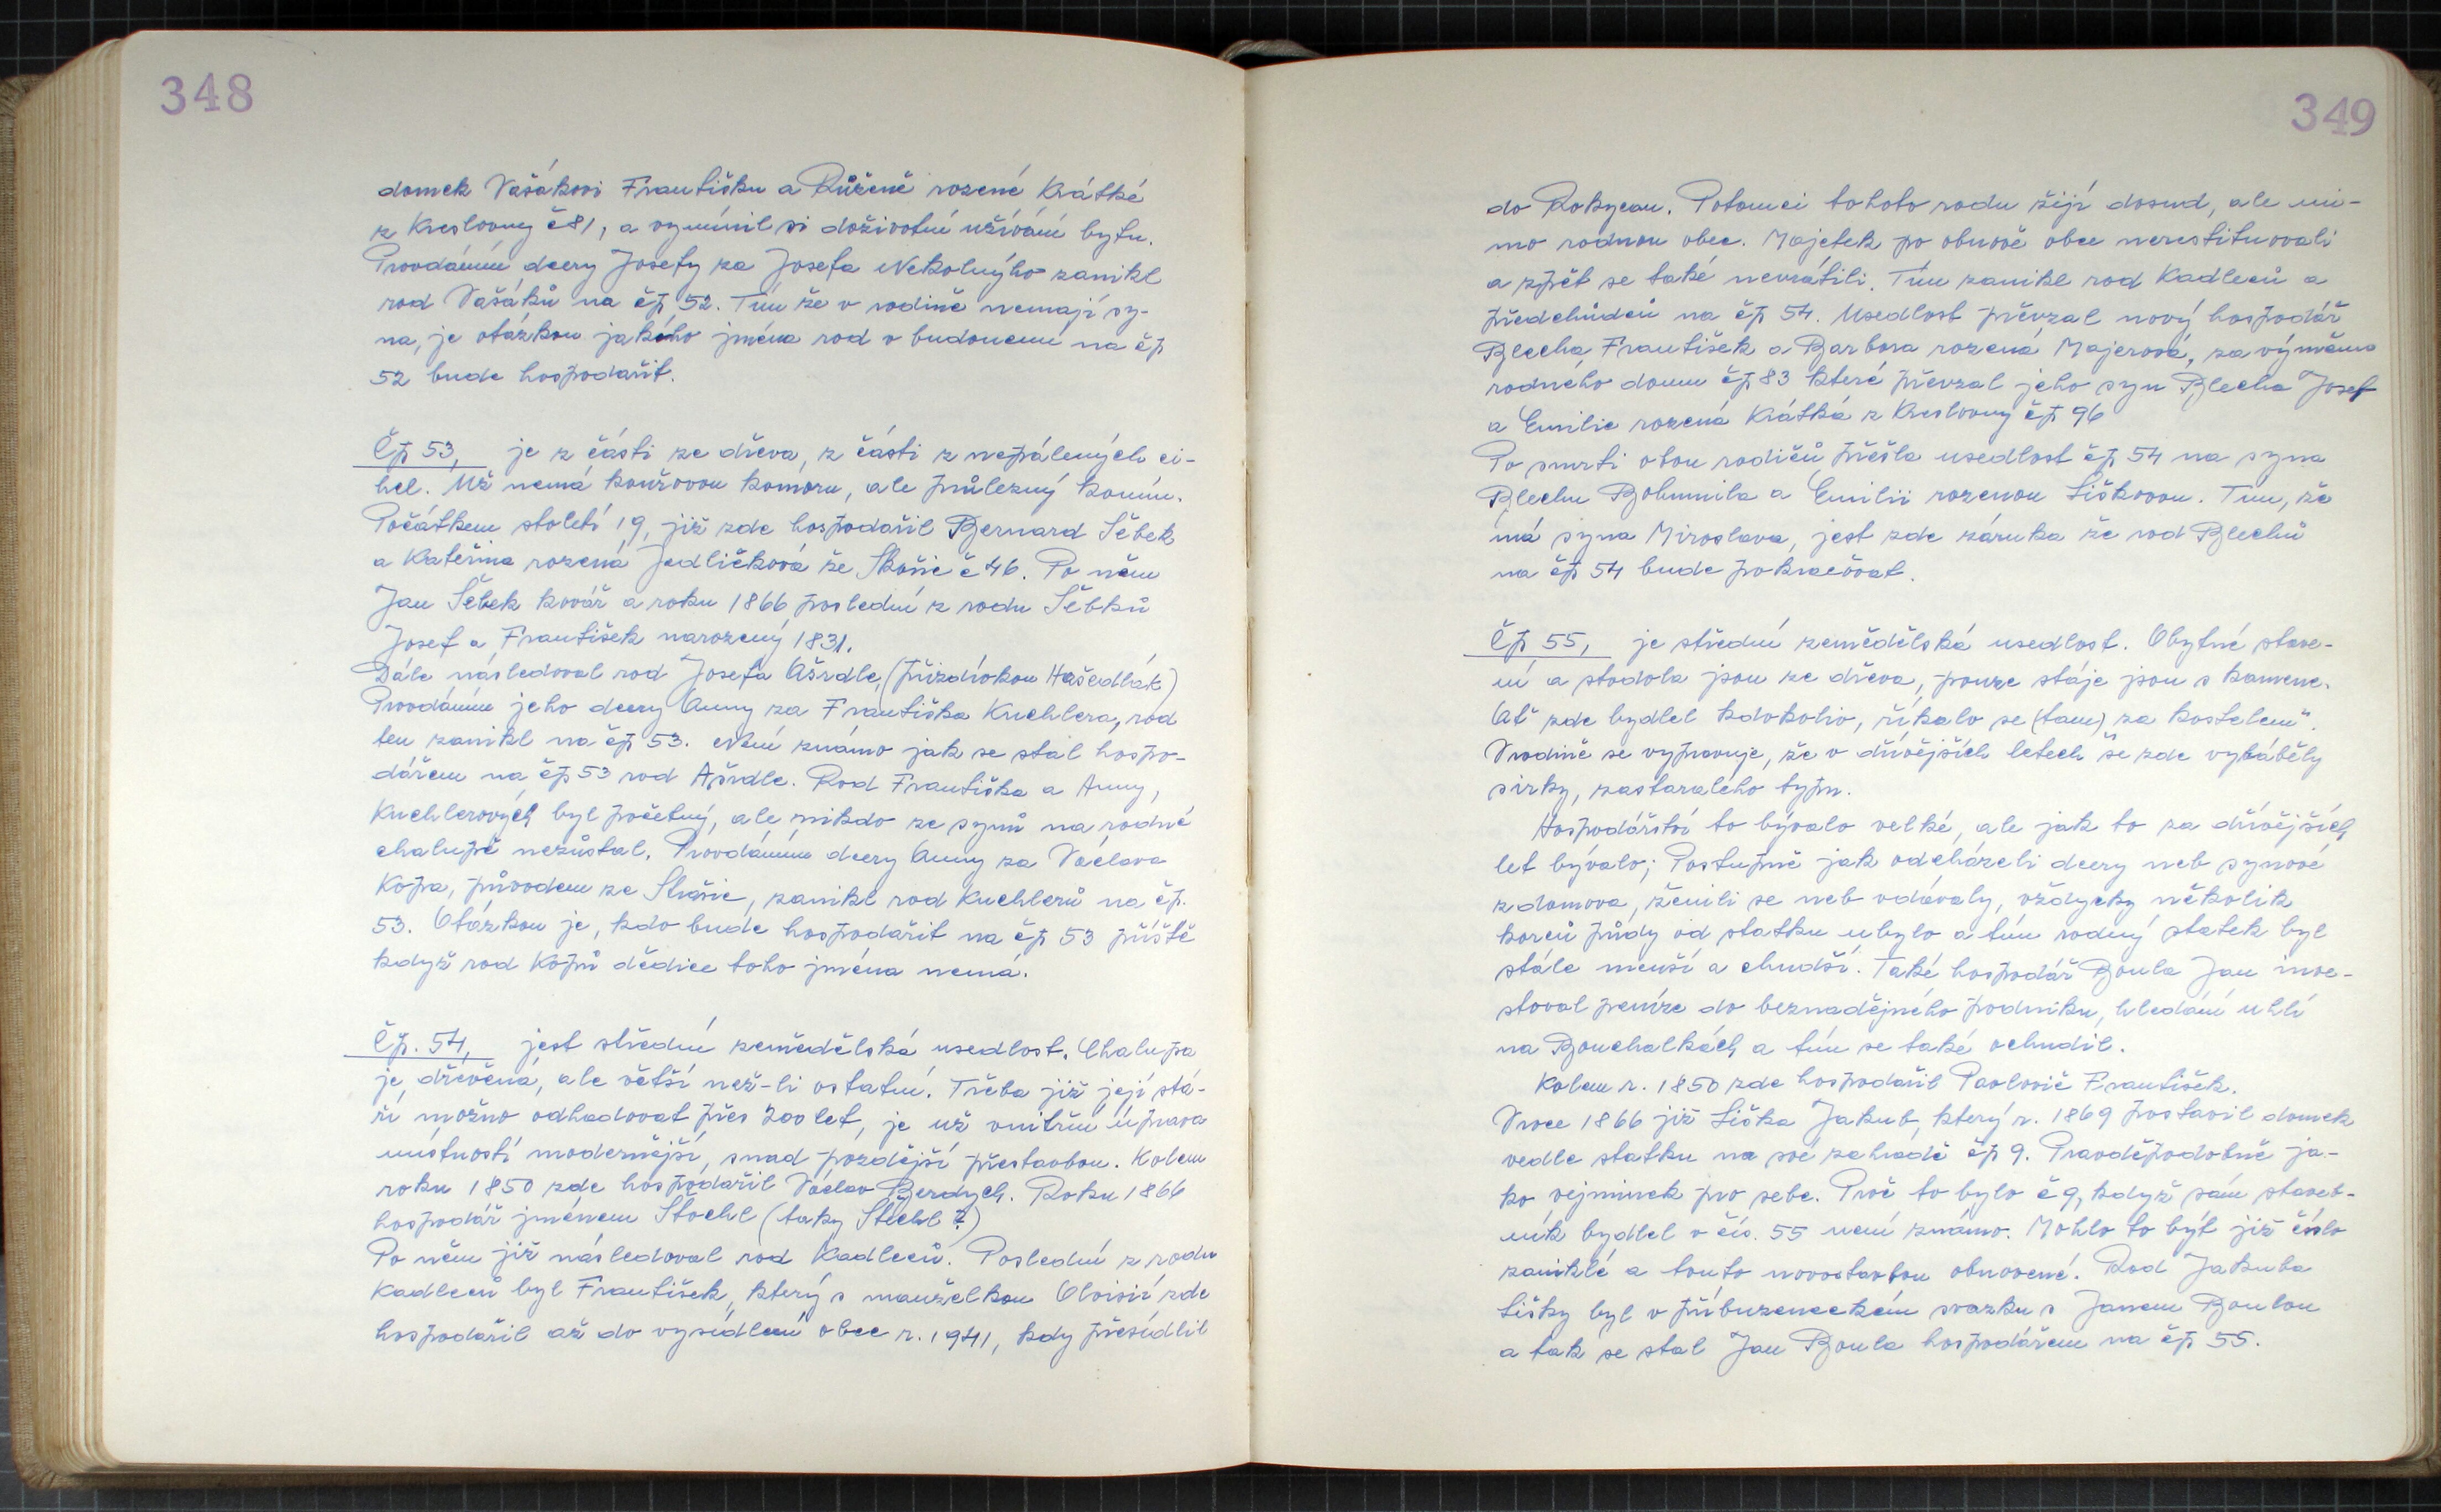 348
domek Vašákovi Františku a Růženě rozené Krátké
z Kreslovny č81, a vymínil si doživotní užívání bytu.
Provdáním dcery Josefy za Josefa Nekolného zanikl
rod Vašáků na čp 52. Tím že v rodině nemají sy-
na, je otázkou jakého jména rod v budoucnu na čp
52 bude hospodařit.
Čp 53, je z části ze dřeva, z části z nepálených ci-
hel. Už nemá kouřovou komoru, ale průlezný komín.
Počátkem století 19, již zde hospodařil Bernard Sěbek
a Kateřina rozená Jedličková ze Skořic č 46. Po něm
Jan Šebek kovář a roku 1866 poslední z rodu Šěbků
Josef a František narozený 1831.
Dále následoval rod Josefa Ašrdle, (přizdívkou Hašedlák)
Provdáním jeho dcery Anny za Františka Kuchlera, rod
ten zanikl na čp 53. Není známo jak se stal hospo-
dářem na čp 53 rod Ašrdle. Rod Františka a Anny,
Kuchlerových byl početný, ale nikdo ze synů na rodné
chalupě nezůstal. Provdáním dcery Anny za Václava
Kopa, původem ze Strašic, zanikl rod Kuchlerů na čp.
53. Otázkou je, kdo bude hospodařit na čp 53 příště
když rod Kopů dědice toho jména nemá.
Čp. 54, jest střední zemědělská usedlost. Chalupa
je dřevěná, ale větší než-li ostatní. Třeba již její stá-
ří možno odhadovat přes 200 let, je už vnitřní úprava
místností modernější, snad pozdější přestavbou. Kolem
roku 1850 zde hospodařil Václav Berdych. Roku 1866
hospodář jménem Stochl (taky Stichl ?)
Po něm již následoval rod Kadleců. Poslední z rodu
Kadleců byl František, který s manželkou Aloisií zde
hospodařil až do vysídlení obce r. 1941, kdy přesídlil
349
do Rokycan. Potomci tohoto rodu žijí dosud, ale mi-
mo rodnou obec. Majetek po obnově obce nerestituovali
a zpět se také nevrátili. Tím zanikl rod Kadleců a
předchůdců na čp 54. Usedlost převzal nový hospodář
Blecha František a Barbora rozená Majerová, za výměnu
rodného domu čp 83 které převzal jeho syn Blecha Josef
a Emilie rozená Krátká z Kreslovny čp 96
Po smrti obou rodičů přešla usedlost čp 54 na syna
Blechu Bohumila a Emilii rozenou Liškovou. Tím, že
má syna Miroslava, jest zde záruka že rod Blechů
na čp 54 bude pokračovat.
Čp 55, je střední zemědělská usedlost. Obytné stave-
ní a stodola jsou ze dřeva, pouze stáje jsou s kamene.
Ať zde bydlel kdokoliv, říkalo se (tam) za kostelem".
Vrodině se vypravuje, že v dřívějších letech še zde vyráběly
sirky, zastaralého typu.
Hospodářství to bývalo velké, ale jak to za dřívějších
let bývalo; Postupně jak odcházeli dcery neb synové
z domova, ženili se neb vdávaly, vždycky několik
korců půdy od statku ubylo a tím rodný statek byl
stále menší a chudší. Také hospodář Boula Jan inve-
stoval peníze do beznadějného podniku, hledání uhlí
na Bouchalkách a tím se také ochudil.
Kolem r. 1850 zde hospodařil Pavlovič František.
Vroce 1866 již Liška Jakub, který r. 1869 postavil domek
vedle statku na své zahradě čp 9. Pravděpodobně ja-
ko vejminek pro sebe. Proč to bylo č9, když sám staveb-
ník bydlel v čís. 55 není známo. Mohlo to být již číslo
zaniklé a touto novostavbou obnovené. Rod Jakuba
Lišky byl v příbuzeneckém svazku s Janem Boulou
a tak se stal Jan Boula hospodářem na čp 55.